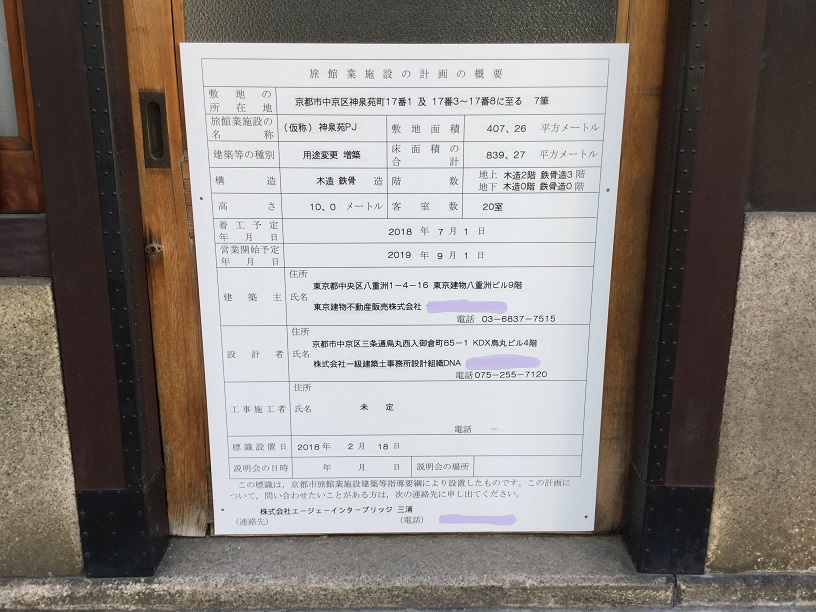 旅館業施設の計画の概要
敷地の所在地 京都市中京区神泉苑町17番1 及 17番3～17番8に至る 7筆
旅館業施設の名称 (仮称) 神泉苑PJ 敷地面積 407、26 平方メートル
建築等の種別 用途変更 増築 床面積の合計 839、27 平方メートル
構造 木造 鉄骨 造 階数 地上 木造2階 鉄骨造3 階
地下 木造0階 鉄骨造0 階
高さ 10、0 メートル 客室数 20室
着工予定年月日 2018 年 7 月 1 日
営業開始予定年月日 2019 年 9 月 1 日
建築主 住所
東京都中央区八重洲1－4－16 東京建物八重洲ビル9階
氏名
東京建物不動産販売株式会社
電話 03－6837－7515
設計者 住所
京都市中京区三条通烏丸西入御倉町85－1 KDX烏丸ビル4階
氏名
株式会社一級建築士事務所設計組織DNA
電話 075－255－7120
工事施工者 住所
氏名 未定
電話 －
標識設置日 2018 年 2 月 18 日
説明会の日時 年 月 日 説明会の場所
この標識は、京都市旅館業施設建築等指導要綱により設置したものです。この計画に
ついて、問い合わせたいことがある方は、次の連絡先に申し出てください。
株式会社エージェーインターブリッジ 三浦
(連絡先) (電話)